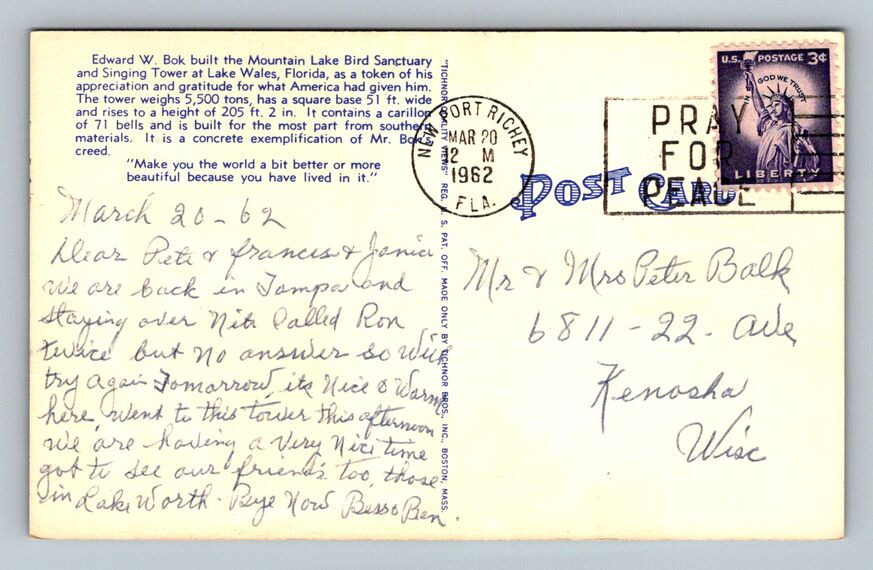 Edward W. Bok built the Mountain Lake Bird Sanctuary
and Singing Tower at Lake Wales, Florida, as a token of his
appreciation and gratitude for what America had given him.
The tower weighs 5,500 tons, has a square base 51 ft. wide
and rises to a height of 205 ft. 2 in. It contains a carillon
of 71 bells and is built for the most part from southern
materials. It is a concrete exemplification of Mr. Bok's
creed.
"Make you the world a bit better or more
beautiful because you have lived in it."
March 20-62
Dear Pete & Francis & Janice
We are back in Tampa and
staying over Nite Called Ron
twice but No answer so will
try again Tomorrow, its Nice & Warm
here, Went to this tower this afternoon
We are having a Very Nice time
got to see our friends too, those
in Lake Worth. Bye Now Bess & Ben.
"TICHNOR QUALITY VIEWS" REG. U. S. PAT. OFF. MADE ONLY BY TICHNOR BROS., INC., BOSTON, MASS.
NEW PORT RICHEY
MAR 20
12 M
1962
FLA.
PRAY
FOR
PEACE
U.S. POSTAGE 3¢
IN GOD WE TRUST
LIBERTY
POST CARD
Mr & Mrs Peter Balk
6811-22. Ave
Kenosha
Wisc